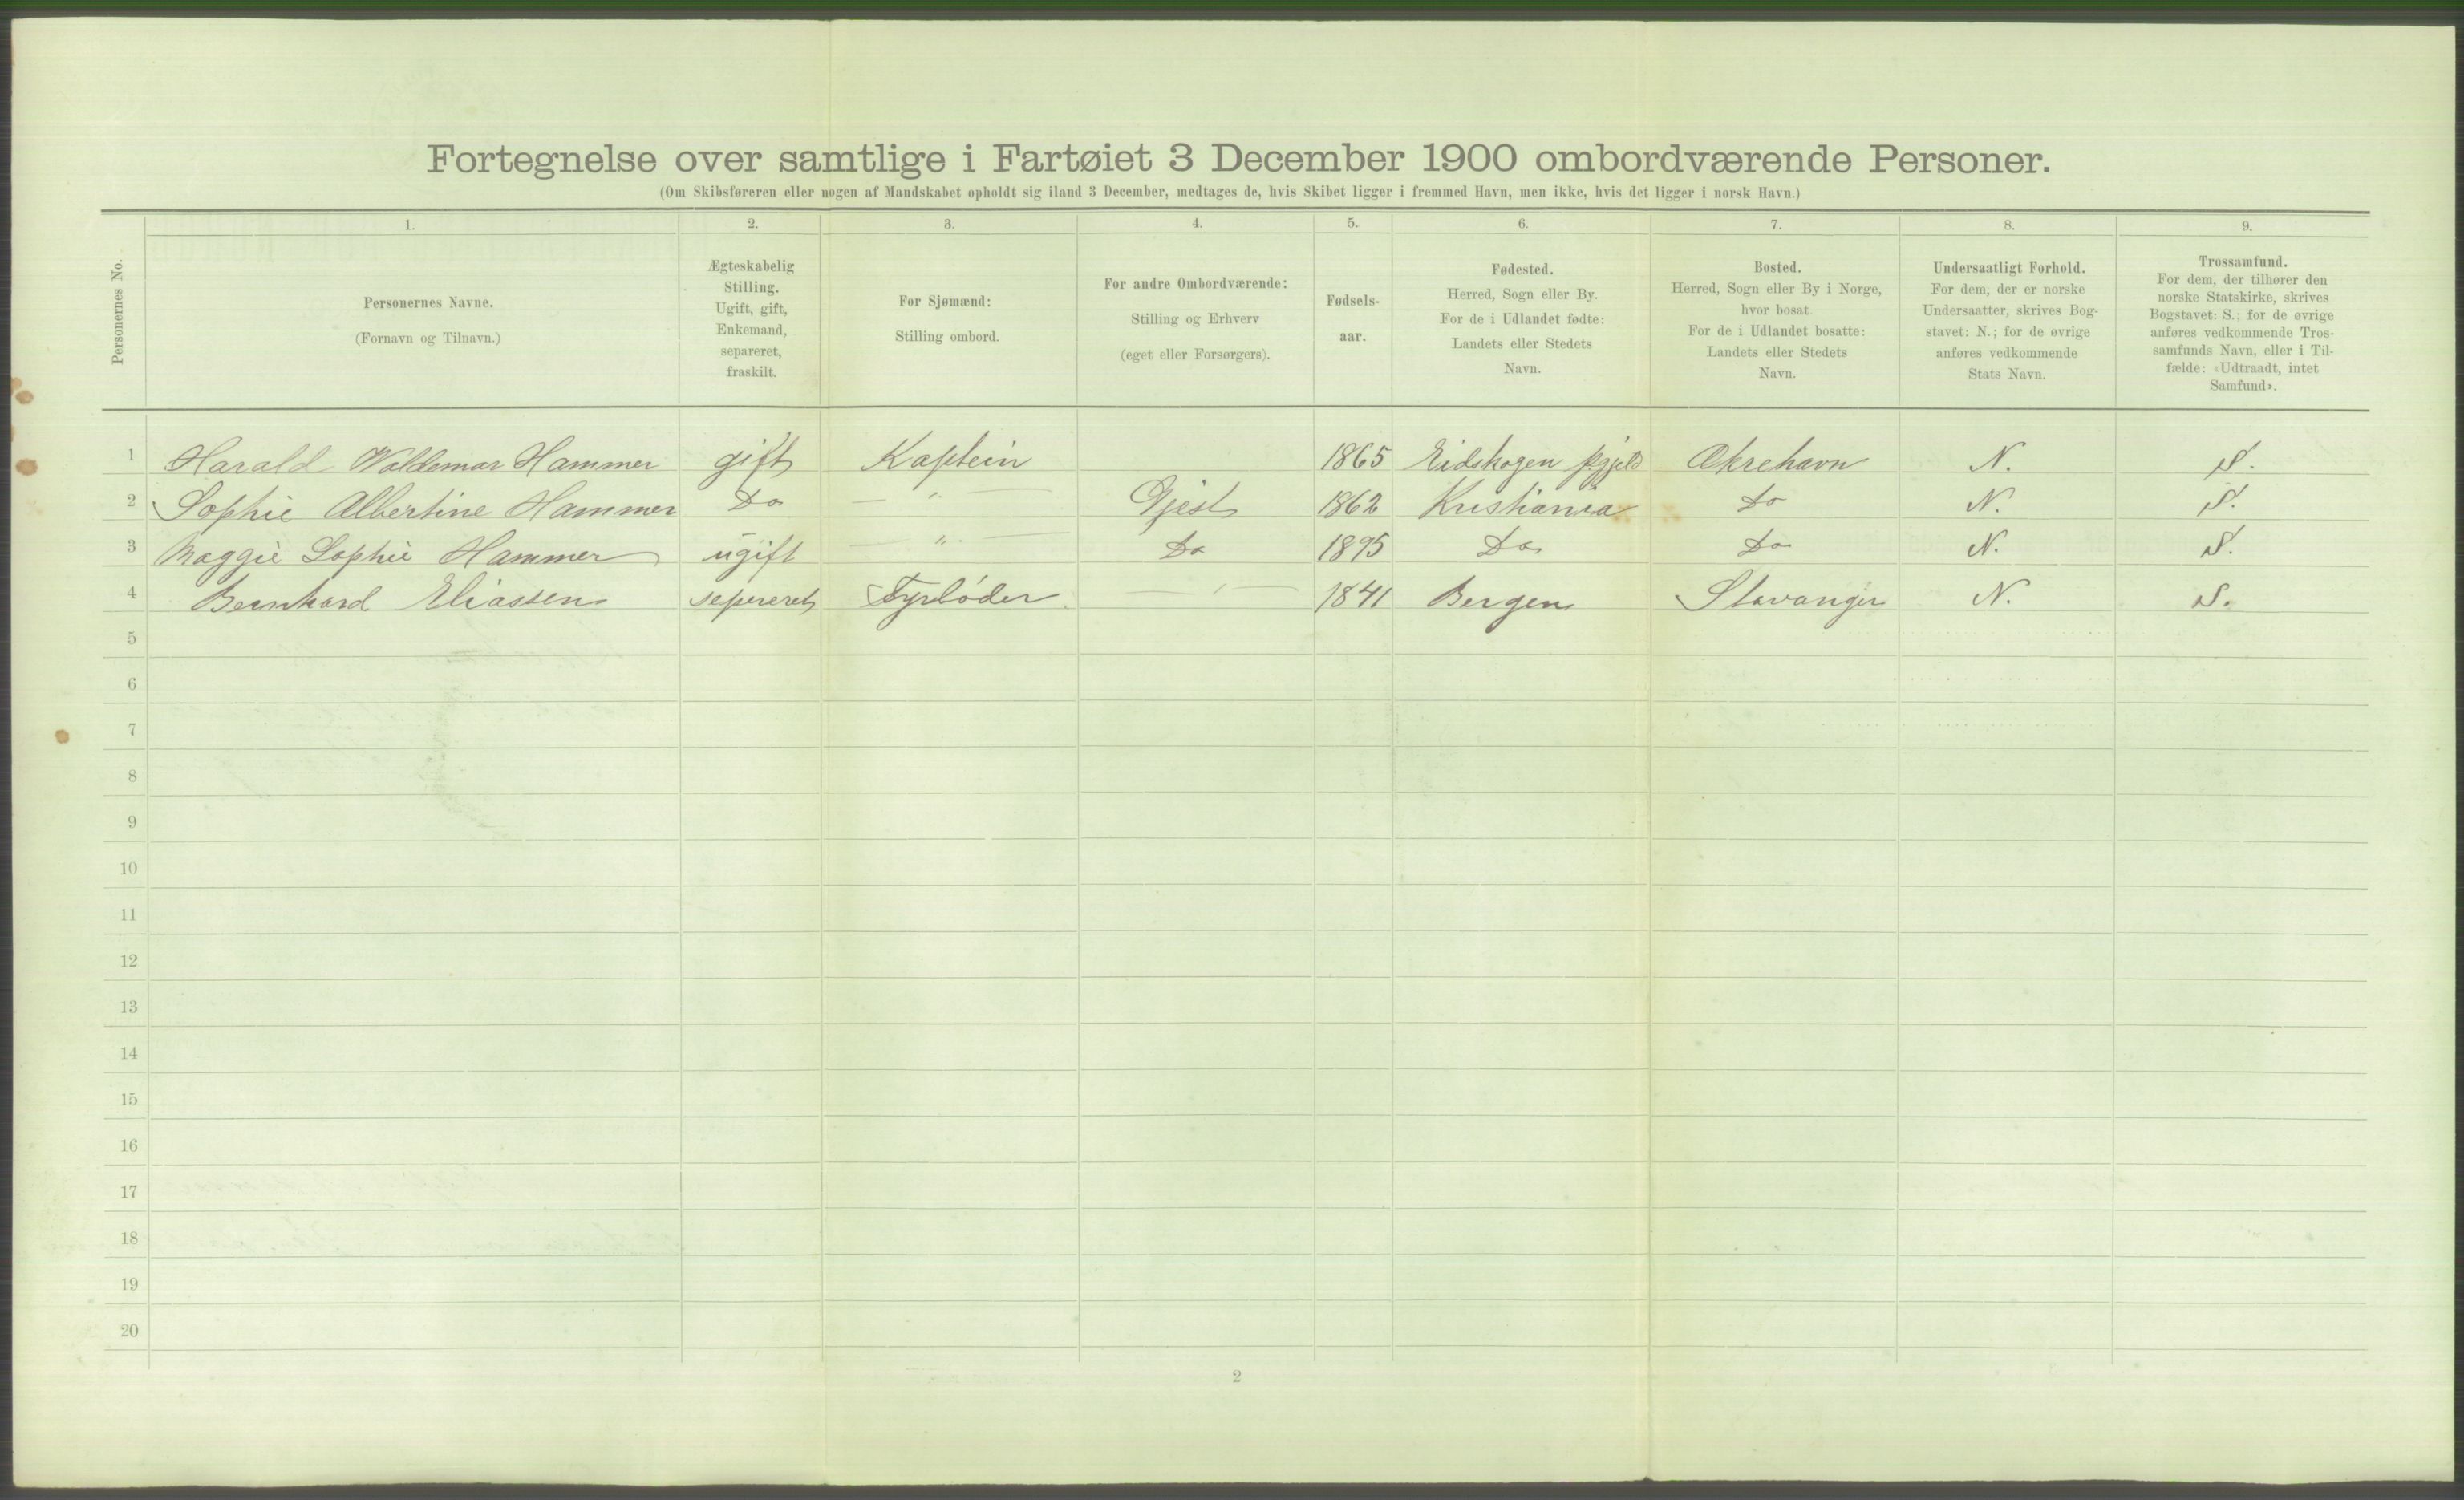 Fortegnelse over samtlige i Fartøiet 3 December 1900 ombordværende Personer.
(Om Skibsføreren eller nogen af Mandskabet opholdt sig iland 3 December, medtages de, hvis Skibet ligger i fremmed Havn, men ikke, hvis det ligger i norsk Havn.)
Personernes No.
1. 2. 3. 4. 5. 6. 7. 8. 9.
Personernes Navne.
(Fornavn og Tilnavn.)
Ægteskabelig
Stilling.
Ugift, gift,
Enkemand,
separeret,
fraskilt.
For Sjømænd:
Stilling ombord.
For andre Ombordværende:
Stilling og Erhverv
(eget eller Forsørgers).
Fødsels-
aar.
Fødested.
Herred, Sogn eller By.
For de i Udlandet fødte:
Landets eller Stedets
Navn.
Bosted.
Herred, Sogn eller By i Norge,
hvor bosat.
For de i Udlandet bosatte:
Landets eller Stedets
Navn.
Undersaatligt Forhold.
For dem, der er norske
Undersaatter, skrives Bog-
stavet: N.; for de øvrige
anføres vedkommende
Stats Navn.
Trossamfund.
For dem, der tilhører den
norske Statskirke, skrives
Bogstavet: S.; for de øvrige
anføres vedkommende Tros-
samfunds Navn, eller i Til-
fælde: «Udtraadt, intet
Samfund».
1 Harald Waldemar Hammer gift Kaptein 1865 Eidskogen pgjeld Akrehavn N. S.
2 Sophie Albertine Hammer Do — " — Gjest 1862 Kristiania Do N. S.
3 Maggie Sophie Hammer ugift — " — Do 1895 Do Do N. S.
4 Bernhard Eliassen sepereret Fyrbøder — " — 1841 Bergen Stavanger N. S.
5
6
7
8
9
10
11
12
13
14
15
16
17
18
19
20
2